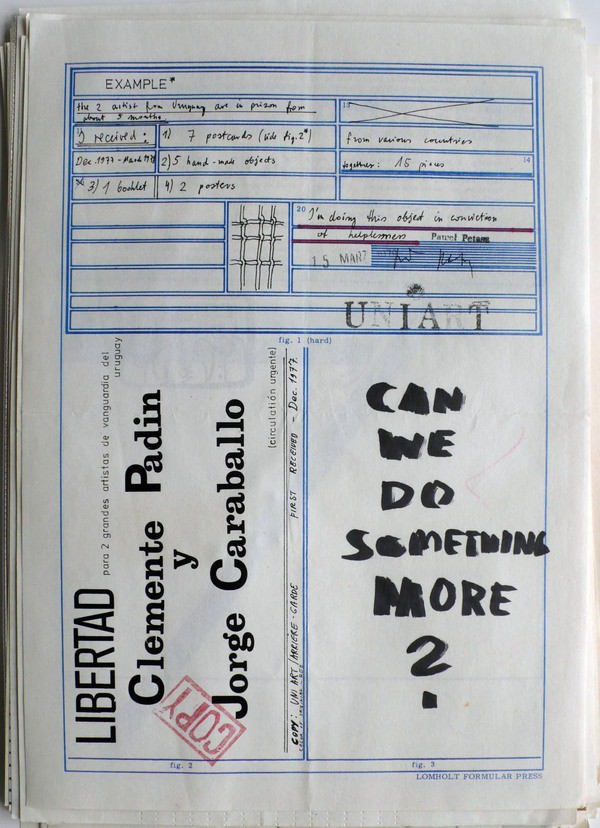 EXAMPLE*
the 2 artist from Uruguay are in prison from
about 5 months.
13
I received:
1) 7 postcards (vide fig. 2*)
from various countries
Dec. 1977 - March 1978
2) 5 hand-made objects
together: 15 pieces
14
* 3) 1 booklet
4) 2 posters
20
I'm doing this object in conviction
of helplessness
Pawel Petasz
15 MART
UNIART
fig. 1 (hard)
LIBERTAD
para 2 grandes artistas de vanguardia del
uruguay
Clemente Padin
y
Jorge Caraballo
(circulatión urgente)
COPY
COPY: UNI ART/ARRIÈRE-GARDE FIRST RECEIVED - Dec. 1977.
fig. 2
CAN
WE
DO
SOMETHING
MORE
?
fig. 3
LOMHOLT FORMULAR PRESS